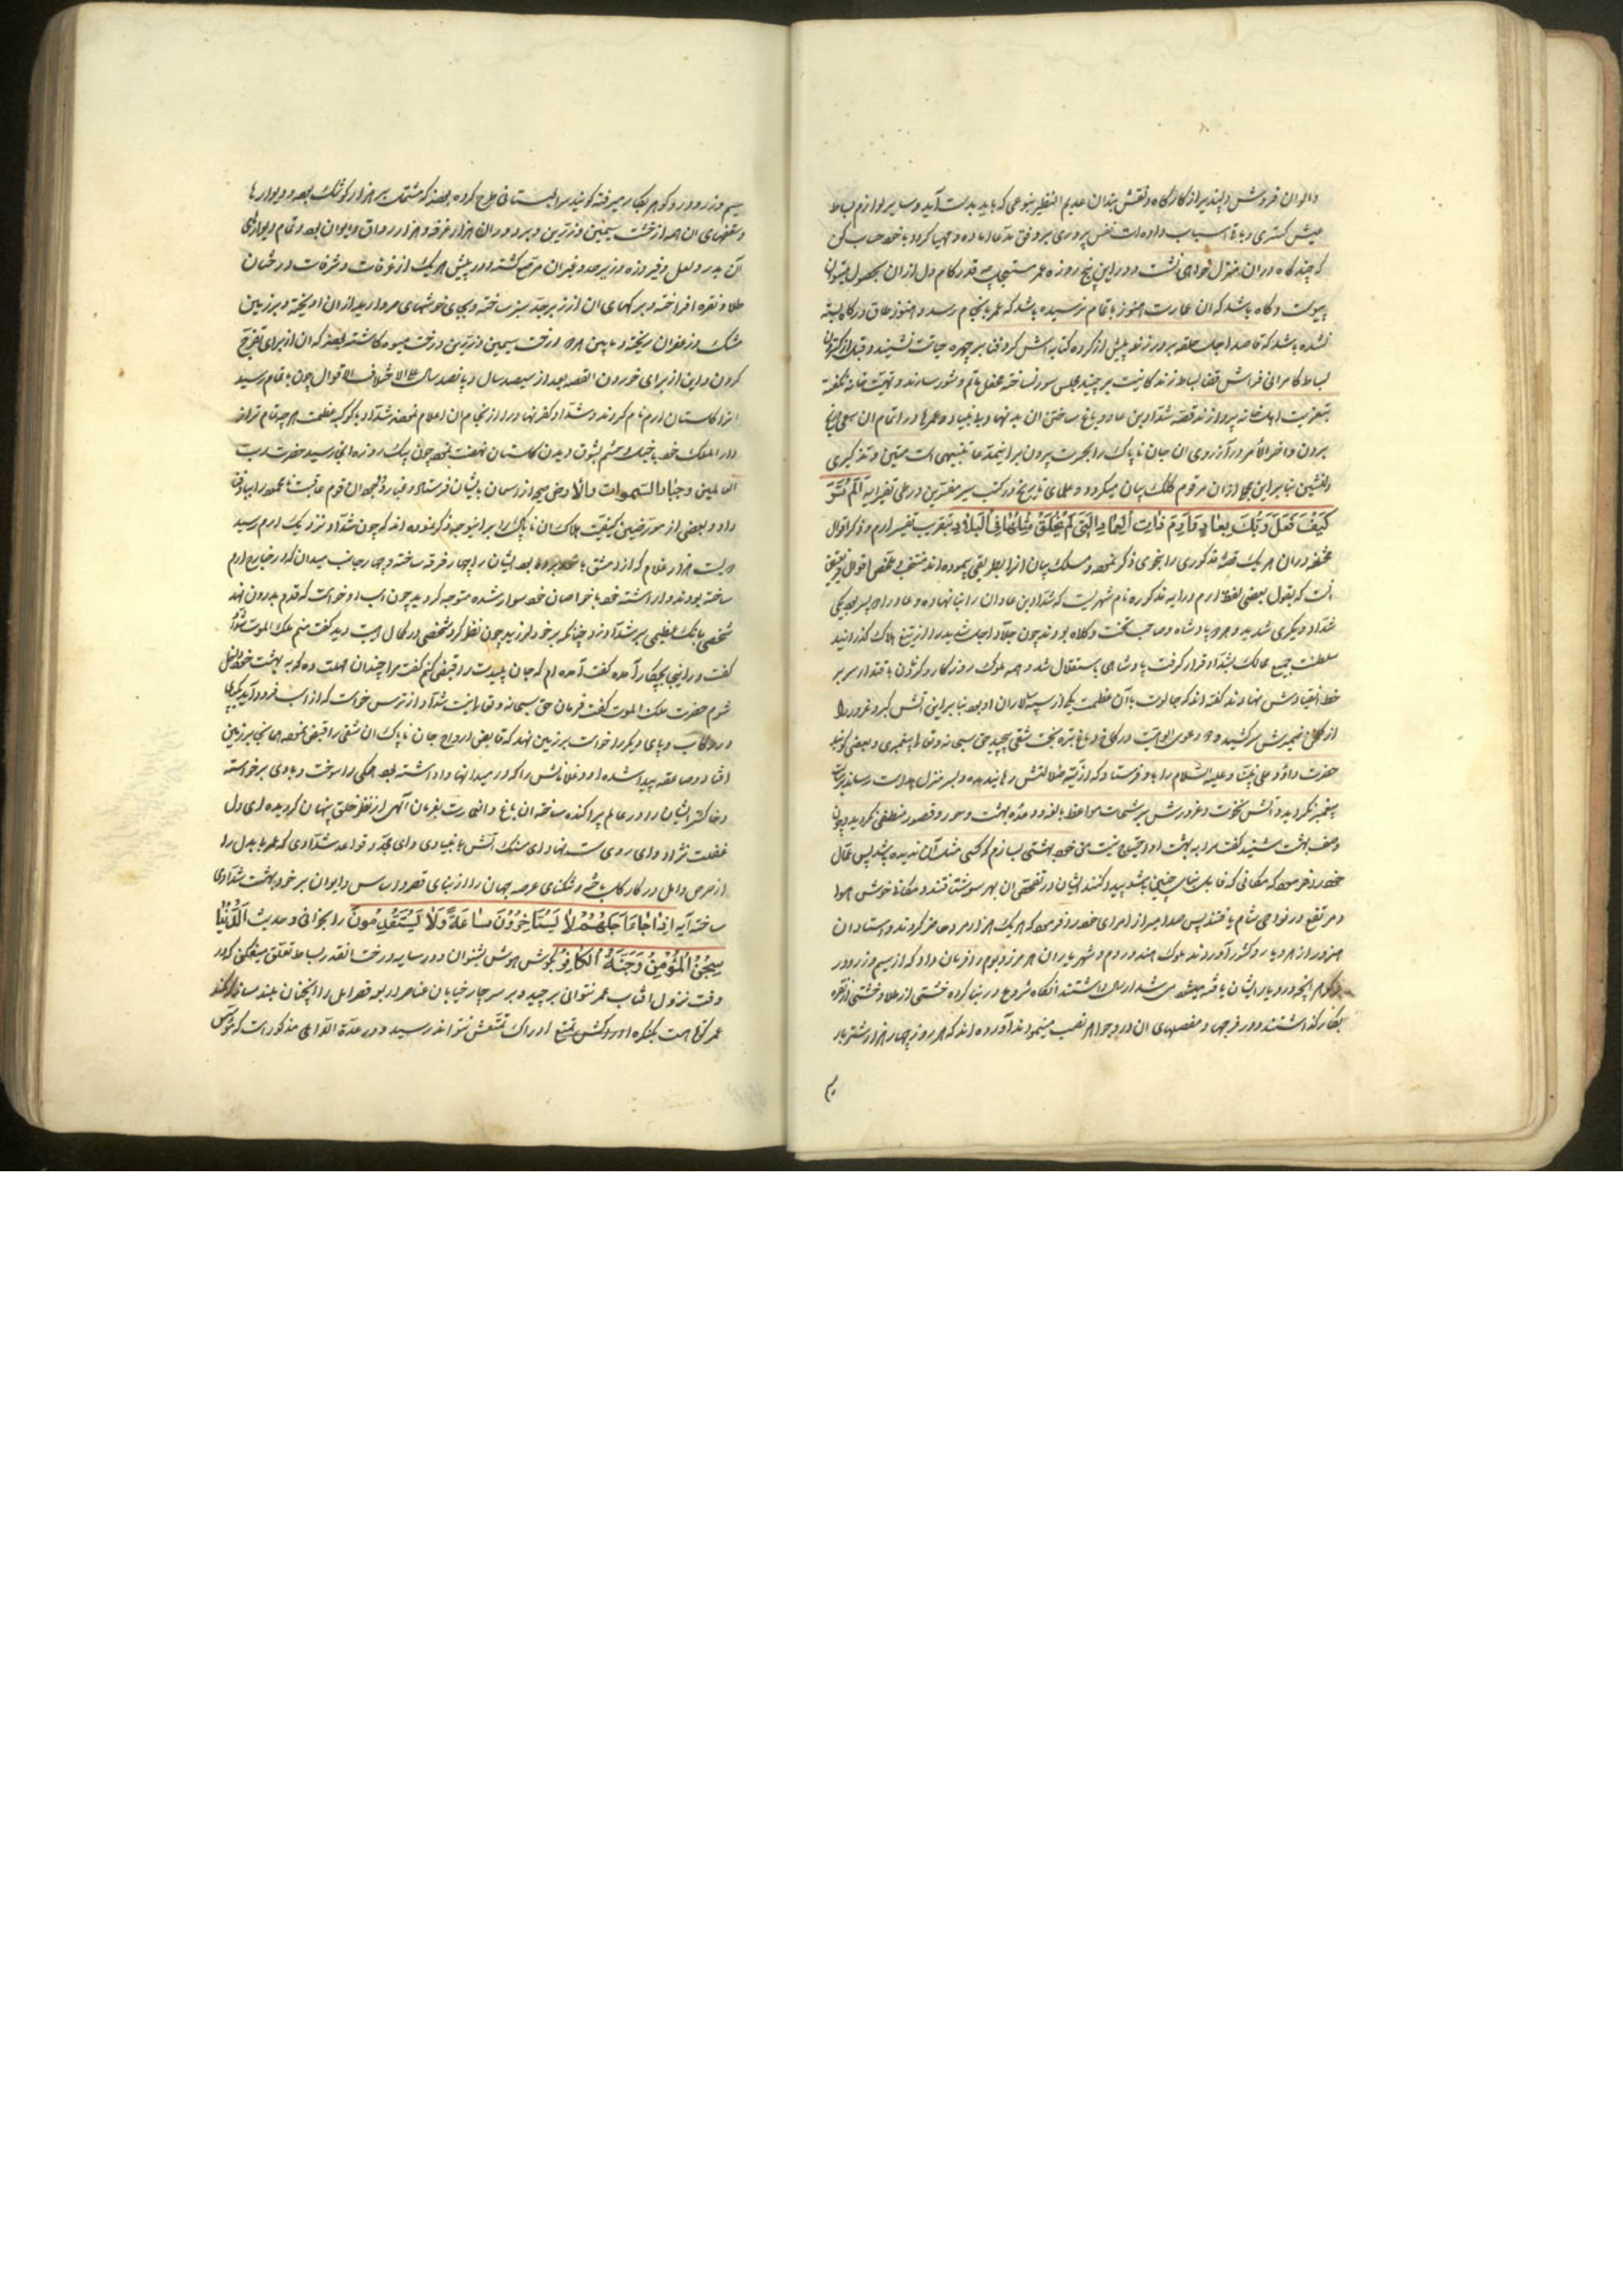 والوان فروش دلپذیر از کارگاه و نقش بندان عدیم النظیر بنوعی که باید بدست آید و سایر لوازم بساط
عیش کستری و باقی اسباب نفس پروری بر وفق مدعا اماده و مهیا کردد با خود حساب کن
که چند گاه در ان منزل خواهی نشست و در این پنج روزه عمر قدر کام دل از ان بحصول
پیوست و گاه باشد که ان عمارت هنوز باتمام نرسیده باشد که عمر بانجام رسد و هنوز طاق در
نشده باشد که قاصد اجل حلقه بر در زند
بساط کامرانی فراش قضا مجلس سور نساخته محفل ماتم و شور سازند و تهنیت خانه نکفته
بتعزیت اهل خانه پردازند قصه شداد بن عاد و باغ ساختن ان و عمرها در اتمام ان سعی
بردن و اخر الامر در آرزوی ان جان ناپاک را بحسرت بیرون تنبیهی است متین و تذکیری
دلنشین بنابراین از ان مرقوم کلک بیان میکردد و علمای تاریخ در کتب سیر مفسرین در طی تفسیر آیه اَلَم تَرَ
کَیْفَ فَعَلَ رَبُّکَ بِعٰادٍ اِرَمَ ذاتِ العِمٰادِ الَّتی لَم یُخْلَقْ مِثْلُهٰا فِی الْبِلادِ بتقریب تفسیر ارم و ذکر اقوال
در ان هر یک قصه مذکوری را بنحوی ذکر نموده و مسلک بیان انرا بطریقی پیموده اند
انست که بقول بعضی لفظ ارم در ایه مذکوره نام شهریست که شداد بن عاد ان را بنا نهاده و عاد را دو پسر بود یکی
شداد و دیکری شدید و هر دو پادشاه و صاحب تخت و کلاه بودند چون جلاد اجل شدید را از تیغ هلاک کذرانید
سلطنت جمیع ممالک بشداد قرار کرفت پادشاهی باستقلال شد و همه ملوک روزکار سر بر
خط انقیادش نهادند کفته اند که جالوت با آن عظمت یکی از سپه سالاران او بود بنابراین اتش کبر و غرور
از کانون ضمیرش سر کشید و دعوی الوهیت در کاخ دماغ تیره بخت شقی پیچید حق سبحانه و تعالی پیغمبری و بعضی کویند
حضرت داود علی نبینا و علیه السلام را باو فرستاد که از تیه ضلالتش رهانیده و بسر منزل هدایت رساند
پیغمبر نکروید و آتش نخوت و غرورش برشحات مواعظ بالغه و وعده بهشت و حور و قصور منطفی نکردید و چون
وصف بهشت شنید کفت مرا به بهشت او احتیاج نیست من خود بهشتی بسازم که کسی مثل آن ندیده باشد پس عمال
خود را فرمود که مکانی که قابل بنای چنین باشد پیدا کنند ایشان در تفحص ان بهر سو شتافتند و مکان خوش هوا
و مرتفع در نواحی شام یافتند پس صد امیر از امرای خود را فرمود که هر یک هزار مرد حاضر کردند و استادان
هنرور از هر دیار و کشور آوردند ملوک هند و روم و شهریاران هر مرز و بوم را فرمان داد که از سیم و زر و در
و کوهر آنچه در دیار ایشان یافت میشد ارسال داشتند انکاه شروع در بنا کرده خشتی از طلا و خشتی از نقره
بکار گذاشتند و در فرجها و مفصلهای ان در و جواهر نصب مینمودند آورده اند که هر روز چهار هزار شتر بار
سیم و زر و در و کوهر بکار میرفته کویند سرا بستانی طرح کرده بودند که مشتمل بر هزار کوشک بود و دیوارها
و سقفهای ان همه از خشت سیمین و زرین و بر دور ان هزار غرفه و هزار رواق و ایوان بود و تمام دیوارهای
آن بدر و لعل و فیروزه و زبرجد و غیران مرصع کشته و در پیش هر یک از غرفات و شرفات درختان
طلا و نقره افراخته و برکهای ان از زبرجد سبز ساخته و بجای خوشهای مروارید از ان اویخته و بر زمین
مشک و زعفران ریخته و مابین هر دو درخت سیمین و زرین درخت میوه کاشته بودند که ان از برای تفرج
کردن و این از برای خوردن القصه بعد از سیصد سال و یا پانصد سال علی اختلاف الاقوال چون باتمام رسید
انرا کلستان ارم نام کردند و شداد کفر نهاد را از انجام ان اعلام نمودند شداد با کوکبه عظمت هر چه تمام تر از
دار الملک خود با خیل و حشم بشوق دیدن کلستان نهضت نمود چون یک روزه راه انجا رسید حضرت رب
العالمین و جبار السموات والارض صیحه از آسمان بایشان فرستاد و غبار وجود ان قوم
داد و بعضی از مورخین کیفیت هلاک ان ناپاک را بر اینوجه ذکر نموده اند که چون شداد نزدیک ارم رسید
دویست هزار غلام که از دمشق با خود برده بود ایشان را چهار فرقه ساخته و چهار جانب میدان که در خارج ارم
ساخته بودند واداشته خود با خواصان خود سوار شده متوجه کردید چون اسب او خواست که قدم بدرون نهد
شخصی بانک عظیمی بر شداد زد چنانکه بر خود لرزید چون نظر کرد شخصی در کمال هیبت دید کفت منم ملک الموت شداد
کفت در اینجا بچکار آمده کفت آمده ام که جان پلیدت را قبض کنم کفت مرا چندان مهلت ده که به بهشت خود داخل
شوم حضرت ملک الموت کفت فرمان حق سبحانه و تعالی نیست شداد از ترس خواست که از اسب فرود آید یک پای
در رکاب و پای دیکر را خواست بر زمین نهد که قابض ارواح جان ناپاک ان شقی را قبض نموده همانجا بر زمین
افتاد و صاعقه پیدا شده او و غلامانش را که در میدانها واداشته بود همکی را سوخت و بادی برخواسته
و خاکستر ایشان را در عالم پراکنده ساخته ان باغ و عمارت بفرمان آلهی از نظر خلق پنهان کردیده ای دل
غفلت نژاد وای روی سست نهاد ای سنک اتش بنیاد وای مجدد قواعد شدادی که عمر بابدل را
از حرص و امل در کار کل باخته و تنکنای عرصه جهان را از بنای قصور اساس و ایوان بر خود بهشت شدادی
ساخته آیه اِذٰا جٰاءَ اَجَلُهُمْ لٰا یَسْتَاْخِرُوْنَ سٰاعَةً وَلٰا یَسْتَقْدِمُونَ را بخوانی و حدیث اَلدُّنْیٰا
سِجْنُ الْمُؤْمِنِ وَجَنَّةُ الکٰافِرِ بکوش هوش بشنو ان در سایه درخت انقدر بساط تعلق میفکن که در
وقت نزول افتاب عمر نتوانی برچید و بر سر چار خیابان عناصر اربعه قصر امل را انچنان بلند مساز که کمند
عمر کوتاهت بکنکره او تمتع ادراک تمتعش نتواند رسید و در عدة الداعی مذکور است که